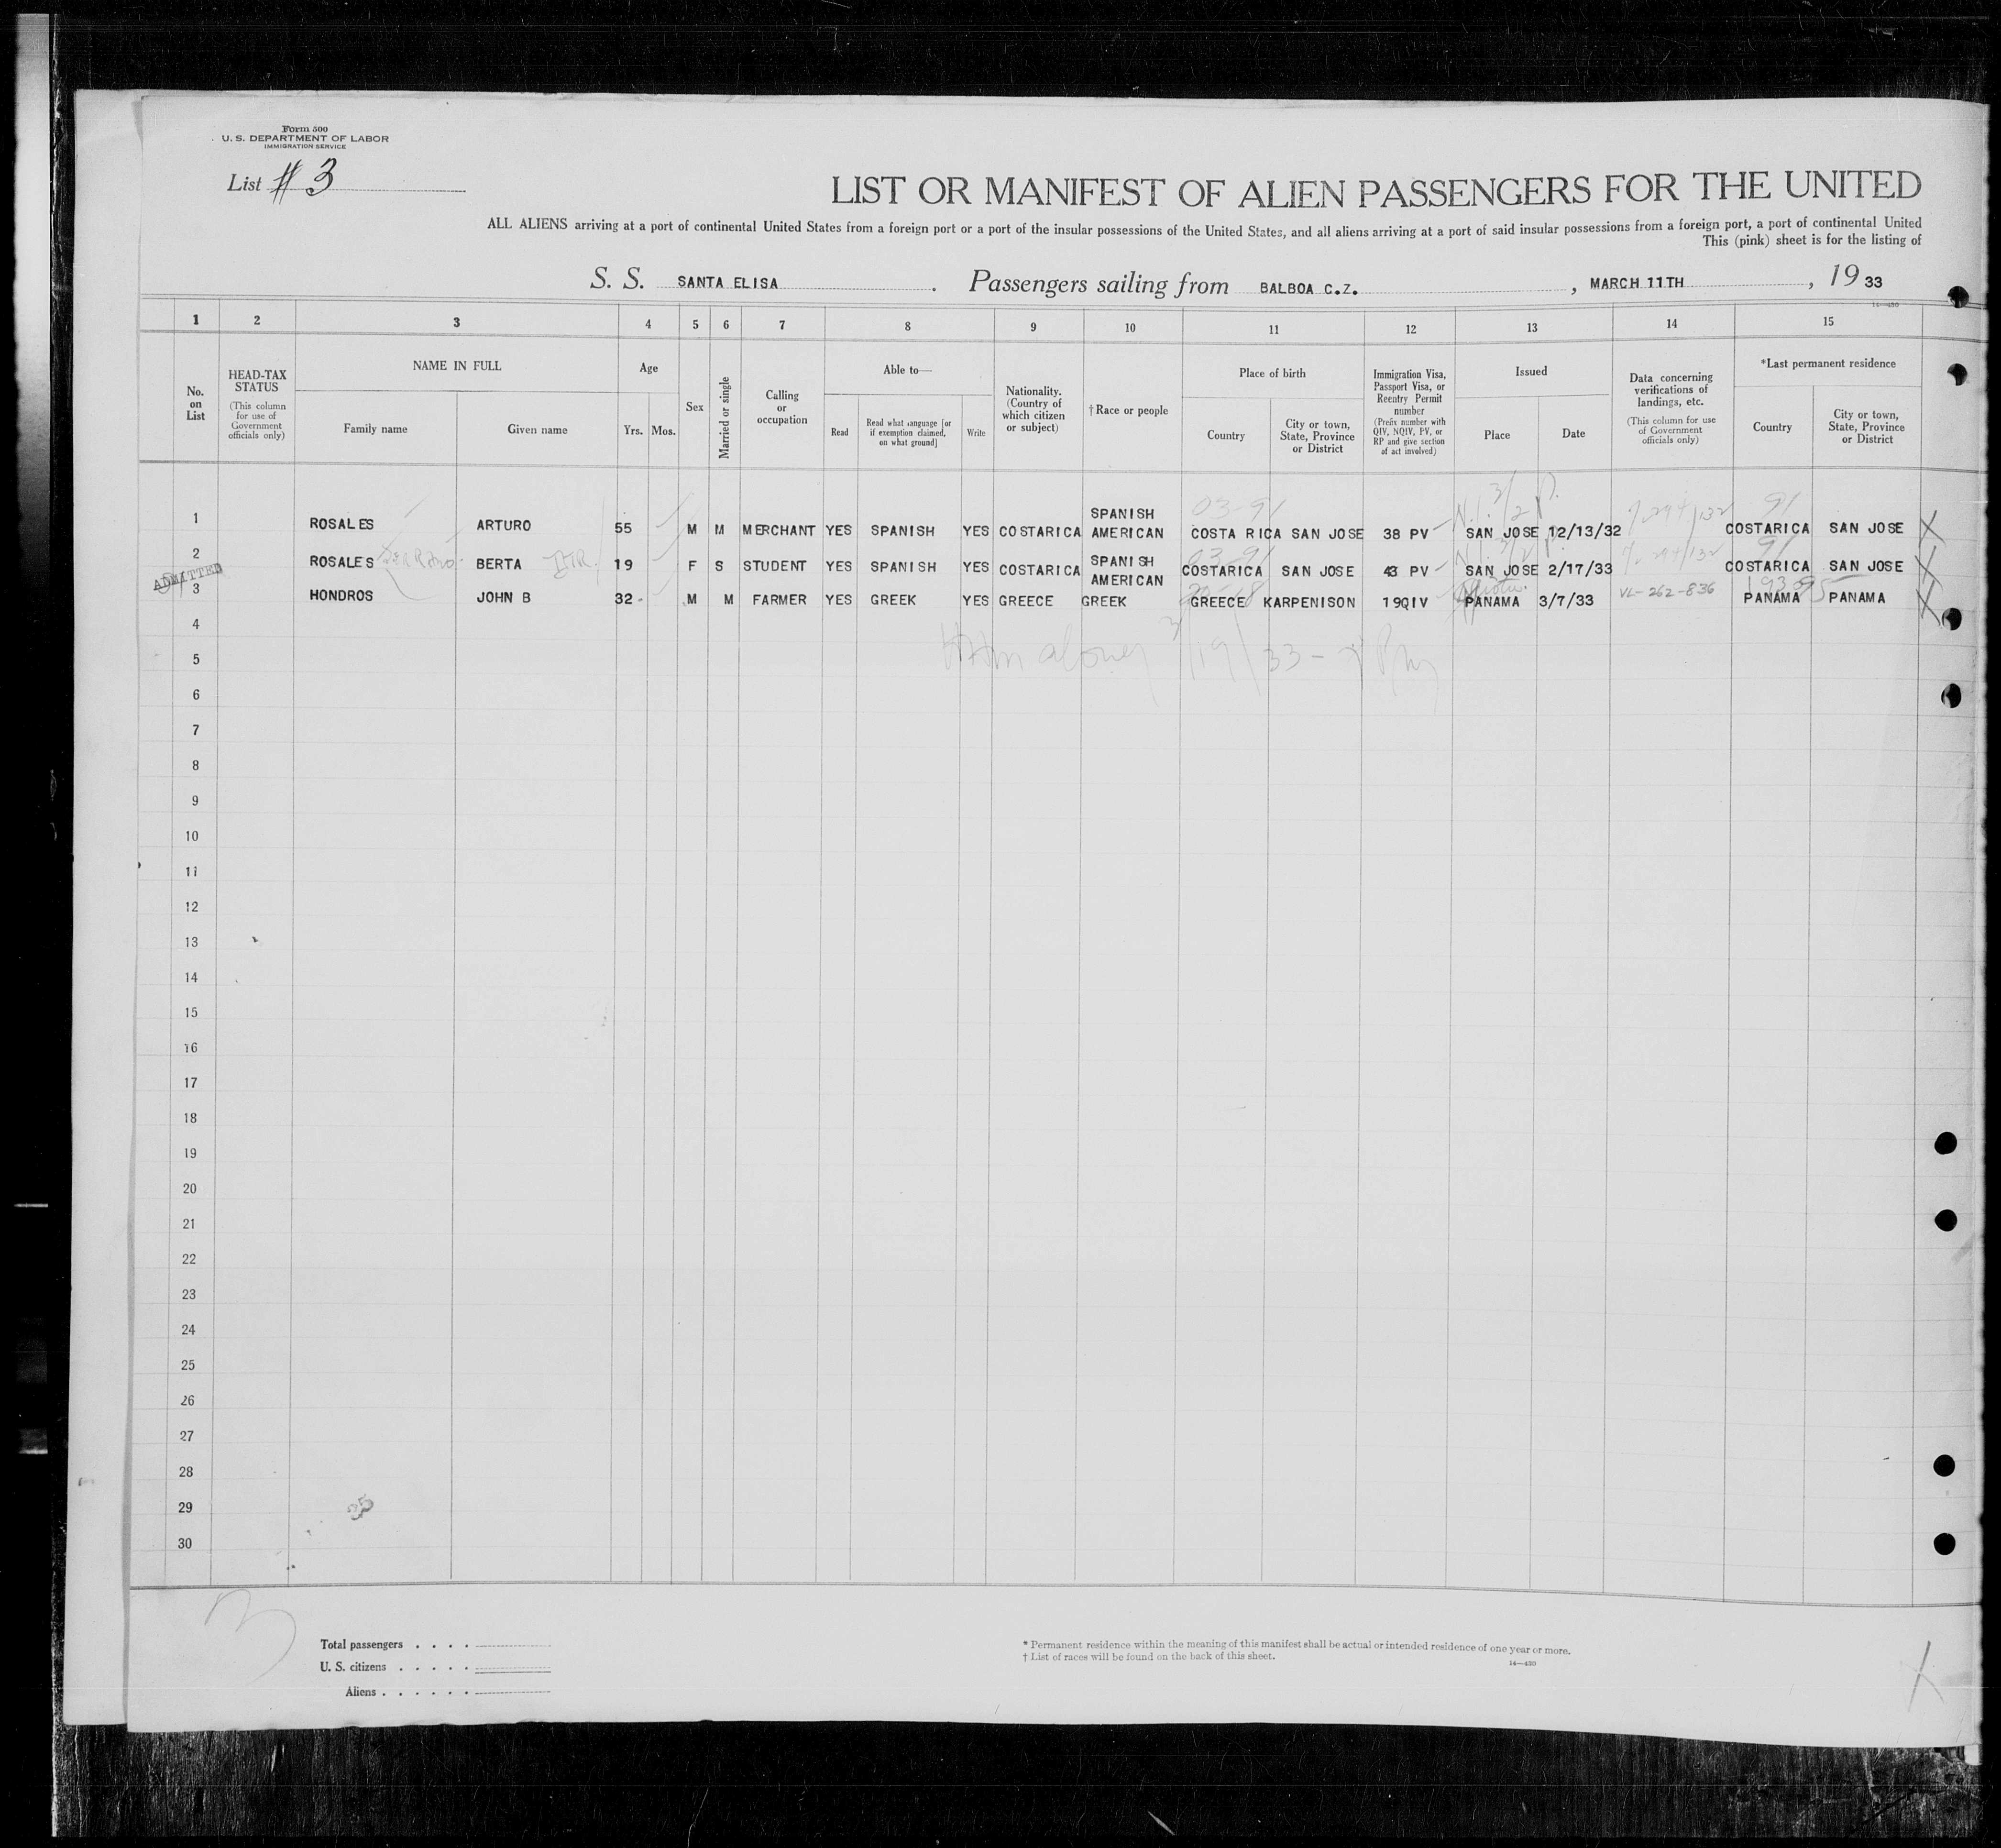 Form 500
U. S. DEPARTMENT OF LABOR
IMMIGRATION SERVICE
List # 3
LIST OR MANIFEST OF ALIEN PASSENGERS FOR THE UNITED
ALL ALIENS arriving at a port of continental United States from a foreign port or a port of the insular possessions of the United States, and all aliens arriving at a port of said insular possessions from a foreign port, a port of continental United
This (pink) sheet is for the listing of
S. S. SANTA ELISA . Passengers sailing from BALBOA C.Z. , MARCH 11TH , 19 33
14—430
1 2 3 4 5 6 7 8 9 10 11 12 13 14 15
No. on List
HEAD-TAX STATUS
(This column for use of Government officials only)
NAME IN FULL
Family name
Given name
Age
Yrs.
Mos.
Sex
Married or single
Calling or occupation
Able to—
Read
Read what language [or if exemption claimed, on what ground]
Write
Nationality. (Country of which citizen or subject)
† Race or people
Place of birth
Country
City or town, State, Province or District
Immigration Visa, Passport Visa, or Reentry Permit number
(Prefix number with QIV, NQIV, PV, or RP and give section of act involved)
Issued
Place
Date
Data concerning verifications of landings, etc.
(This column for use of Government officials only)
*Last permanent residence
Country
City or town, State, Province or District
03-91 91
1 ROSALES ARTURO 55 M M MERCHANT YES SPANISH YES COSTARICA SPANISH AMERICAN COSTA RICA SAN JOSE 38 PV SAN JOSE 12/13/32 COSTARICA SAN JOSE X
03-91 91
2 ROSALES BERTA 19 F S STUDENT YES SPANISH YES COSTARICA SPANISH AMERICAN COSTARICA SAN JOSE 43 PV SAN JOSE 2/17/33 COSTARICA SAN JOSE X
ADMITTED
3 HONDROS JOHN B 32 M M FARMER YES GREEK YES GREECE GREEK GREECE KARPENISON 19QIV PANAMA 3/7/33 VL-262-836 PANAMA PANAMA X
4
5
6
7
8
9
10
11
12
13
14
15
16
17
18
19
20
21
22
23
24
25
26
27
28
29
30
3
Total passengers . . . .
U. S. citizens . . . . .
Aliens . . . . . .
* Permanent residence within the meaning of this manifest shall be actual or intended residence of one year or more.
† List of races will be found on the back of this sheet.
14—430
X